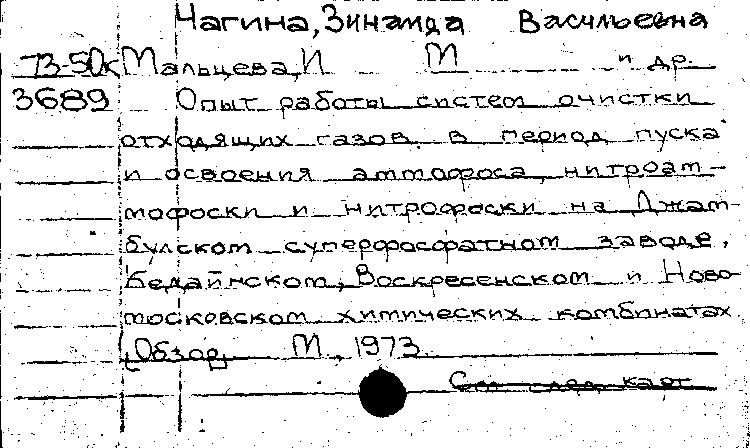 Чагина, Зинаида Васильевна
73-50к Мальцева, И М и др.
3689 Опыт работы систем очистки
отходящих газов в период пуска
и освоения аммофоса, нитроам-
мофоски и нитрофоски на Джам-
булском суперфосфатном заводе,
Воскресенском и Ново-
московском химических комбинатах.
(Обзор) М, 1973
См след карт